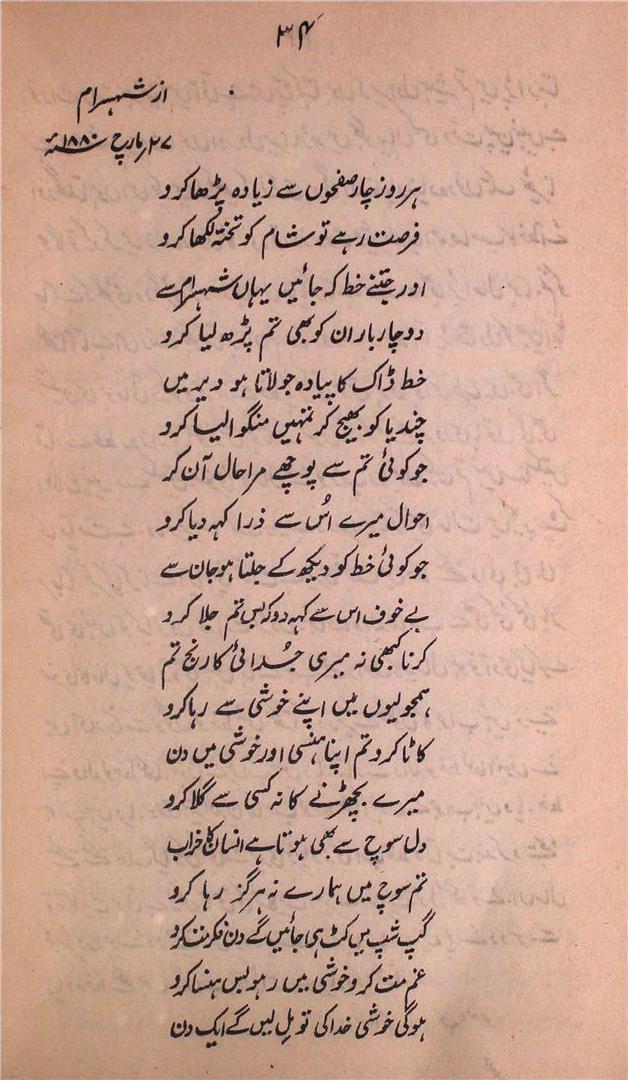 ۳۴
از شہسرام
۲۷ مارچ ۱۸۸۰ء
ہر روز چار صفحوں سے زیادہ پڑھا کرو
فرصت رہے تو شام کو تختہ لکھا کرو
اور جتنے خط کہ جائیں یہاں شہسرام سے
دو چار بار ان کو بھی تم پڑھ لیا کرو
خط ڈاک کا پیادہ جو لاتا ہو دیر میں
چندیا کو بھیج کر تمہیں منگوا لیا کرو
جو کوئی تم سے پوچھے مرا حال آن کر
احوال میرے اُس سے ذرا کہہ دیا کرو
جو کوئی خط کو دیکھ کے جلتا ہو جان سے
بے خوف اس سے کہہ دو کہ بس تم جلا کرو
کرنا کبھی نہ میری جُدائی کا رنج تم
ہمجولیوں میں اپنے خوشی سے رہا کرو
کاٹا کرو تم اپنا ہنسی اور خوشی میں دن
میرے بچھڑنے کا نہ کسی سے گلا کرو
دل سوچ سے بھی ہوتا ہے انسان کا خراب
تم سوچ میں ہمارے نہ ہرگز رہا کرو
گپ شپ میں کٹ ہی جائیں گے دن فکر مت کرو
غم مت کرو خوشی میں رہو بس ہنسا کرو
ہوگی خوشی خدا کی تو مِل لیں گے ایک دن